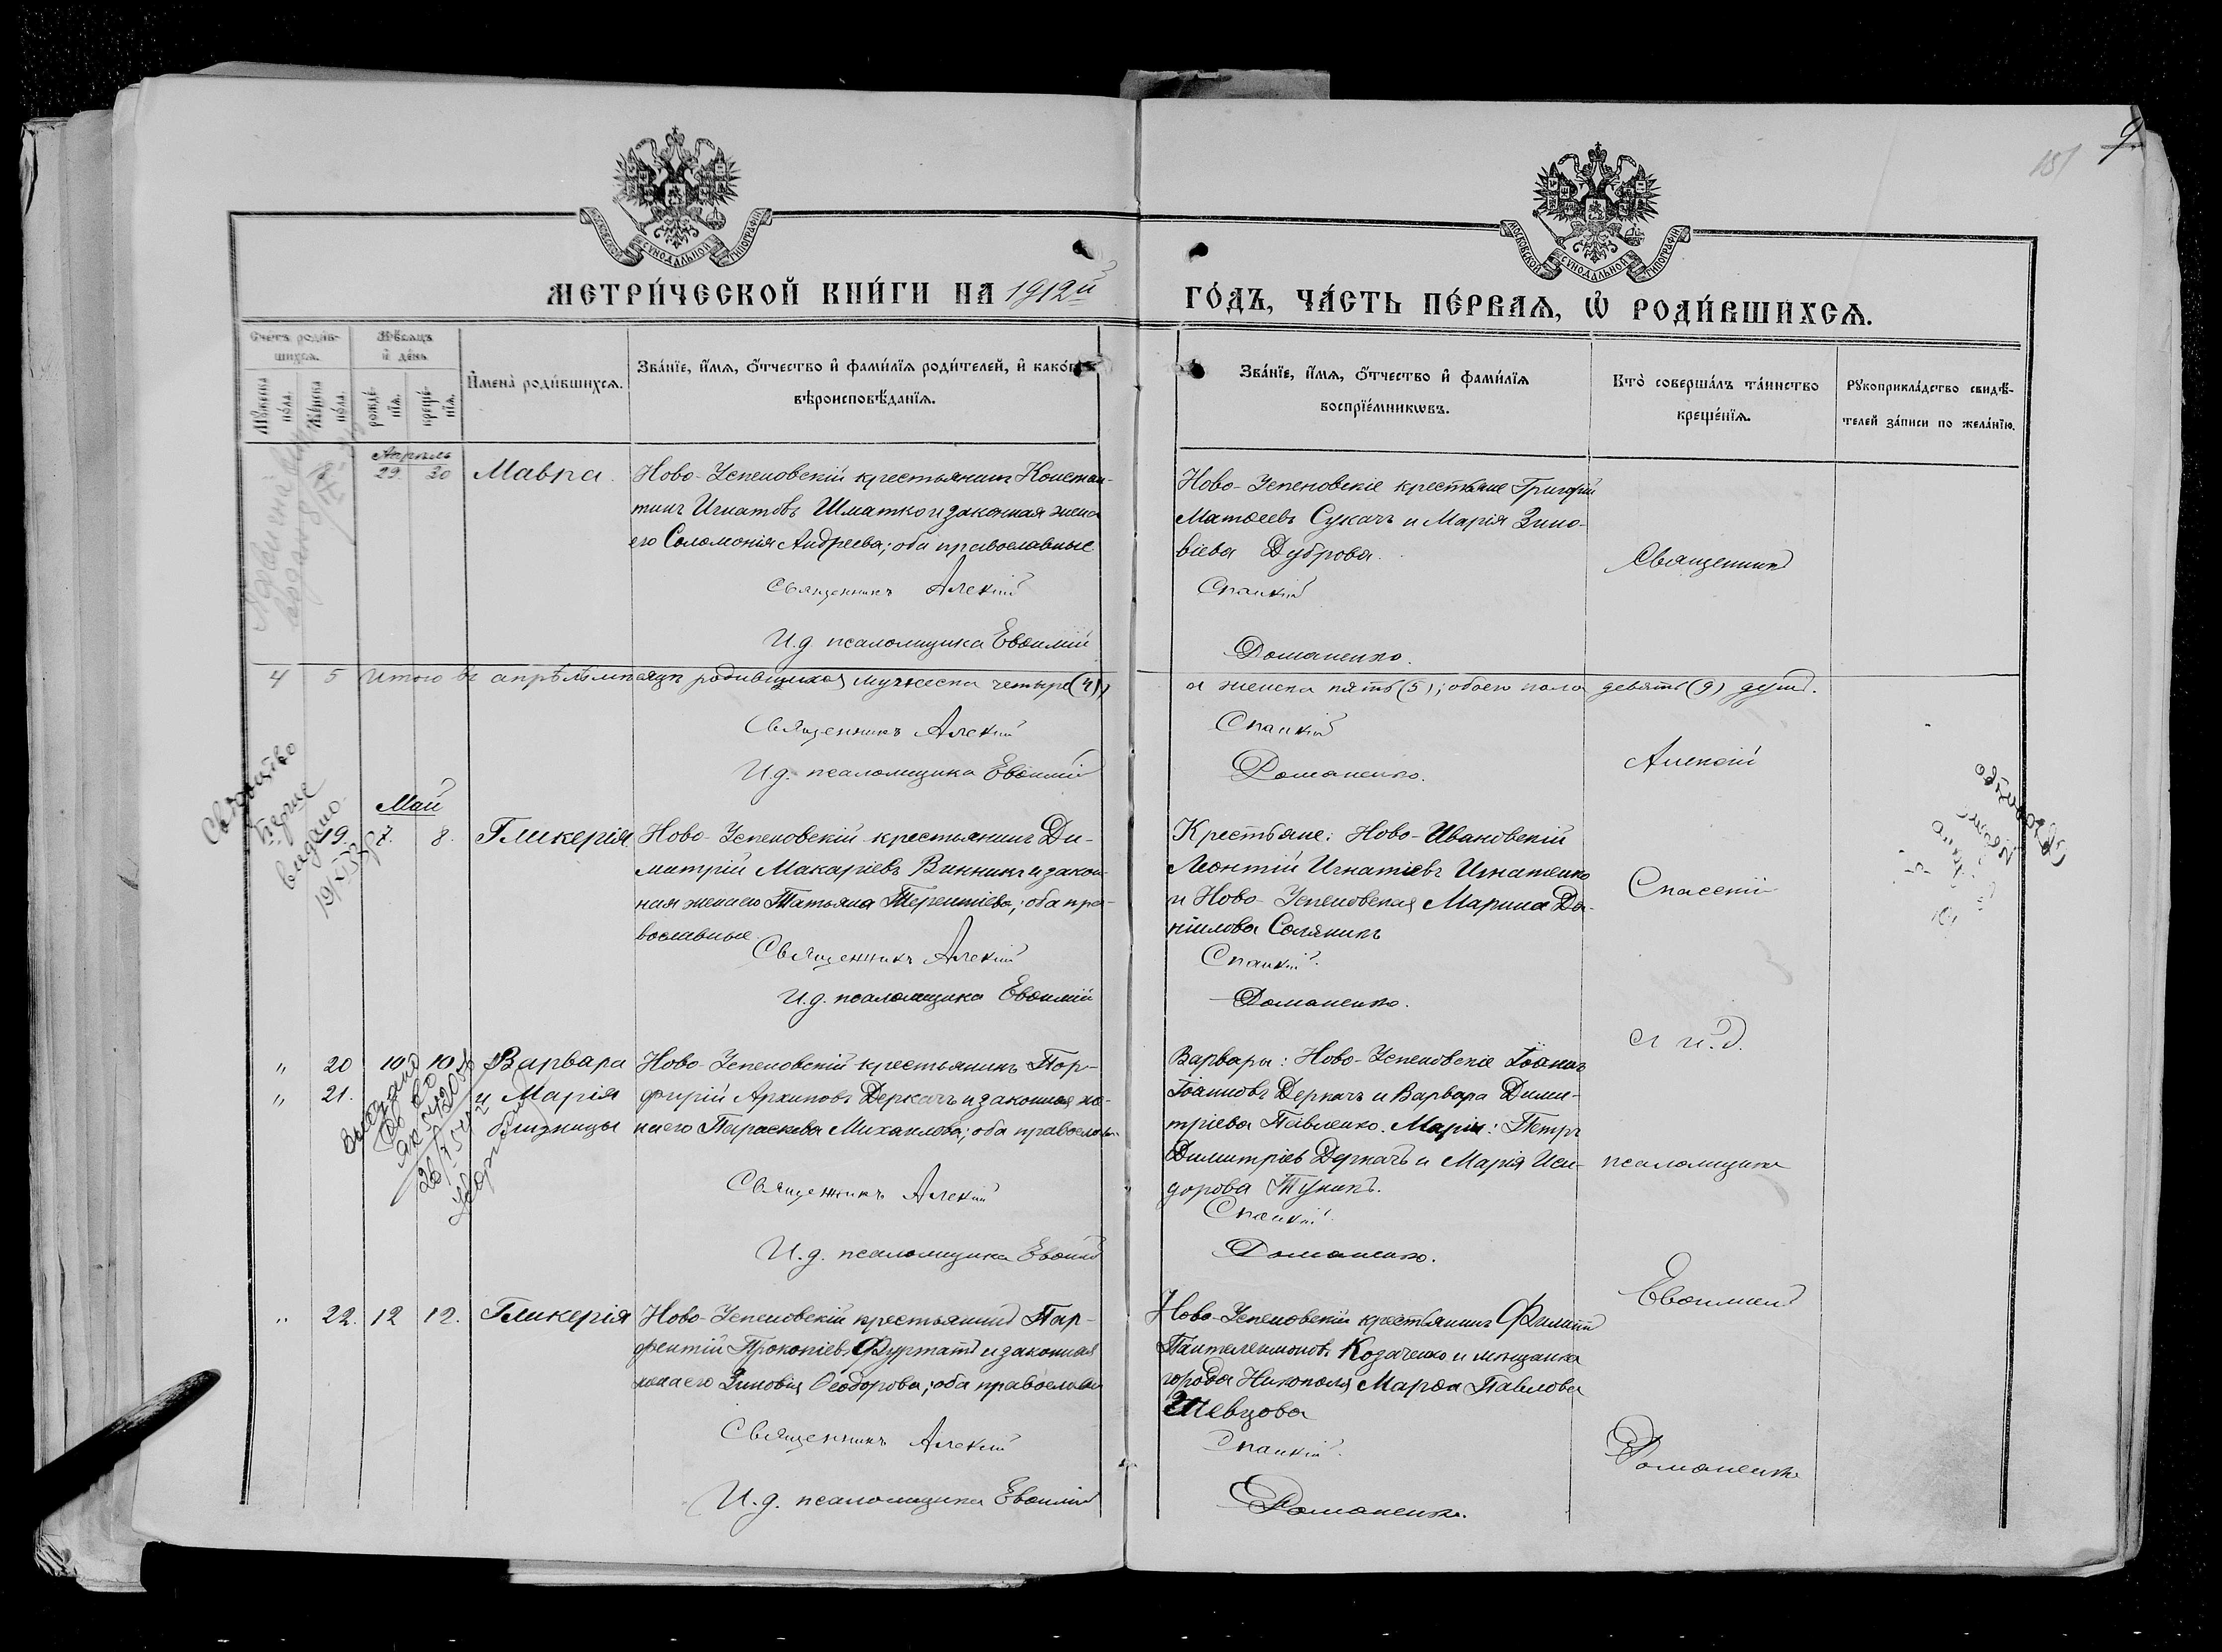 151
9.
МОСКОВСКОЙ СѴНОДАЛЬНОЙ ТИПОГРАФІИ
МОСКОВСКОЙ СѴНОДАЛЬНОЙ ТИПОГРАФІИ
МЕТРИ́ЧЕСКОЙ КНИ́ГИ НА 1912й
ГО́ДЪ, ЧА́СТЬ ПЕ́РВАЯ, Ѡ РОДИ́ВШИХСЯ.
Сче́тъ роди́в-
шихся.
Мѣ́сяцъ
и де́нь
Му́жеска по́ла.
Же́нска по́ла.
рожде́-
нїя.
креще́-
нїя.
Имена̀ роди́вшихся.
Зва́нїе, и́мя, о́тчество и фами́лїя роди́телей, и како́гѡ
вѣроисповѣ́данїя.
Зва́нїе, и́мя, о́тчество и фами́лїя
воспрїе́мникѡвъ.
Кто̀ соверша́лъ та́инство
креще́нїя.
Рꙋкоприкла́дство свидѣ́-
телей за́писи по жела́нїю.
Апрѣль
29 30 Мавра.
Ново-Успеновскій крестьянинъ Констан-
тинъ Игнатовъ Шматко и законная жена
его Соломонія Андреева; оба православные
Священникъ Алексій
И.д. псаломщика Евѳимій
Ново-Успеновскіе крестьяне Григорій
Матѳеевъ Сукачъ и Марія Зино-
віева Дуброва.
Спасскій
Доманенко.
Священникъ
4 5 Итого въ апрѣлѣ мѣсяцѣ родившихся мужеска четыре (4),
а женска пять (5); обоего пола девять (9) душъ.
Священникъ Алексій
Спасскій
И.д. псаломщика Евѳимій
Доманенко.
Алексій
Свідоцтво
перше
видано
Май
19. 7. 8. Гликерія
Ново-Успеновскій крестьянинъ Ди-
митрій Макаріевъ Винникъ и закон-
ная жена его Татьяна Терентіева; оба пра-
вославные.
Священникъ Алексій
И.д. псаломщика Евѳимій
Крестьяне: Ново-Ивановскій
Леонтій Игнатіевъ Игнатенко
и Ново-Успеновская Марина Да-
ніилова Соляникъ
Спасскій.
Доманенко.
Спасскій
и и.д.
" 20 10 10 Варвара
" 21. и Марія
близницы
Ново-Успеновскій крестьянинъ Пор-
фирій Архиповъ Деркачъ и законная же-
на его Параскева Михаилова; оба православн.
Священникъ Алексій
И.д. псаломщика Евѳимій
Варвары: Ново-Успеновскіе Іоаннъ
Іоанновъ Деркачъ и Варвара Дими-
тріева Павленко. Маріи: Петръ
Димитріевъ Деркачъ и Марія Иси-
дорова Тупикъ.
Спасскій.
Доманенко.
псаломщика
Евѳимій
" 22. 12 12. Гликерія
Ново-Успеновскій крестьянинъ Пар-
фентій Прокопіевъ Фурматъ и законная
жена его Зиновія Ѳеодорова; оба православн
Священникъ Алексій
И.д. псаломщика Евѳимій
Ново-Успеновскій крестьянинъ Филиппъ
Пантелеимоновъ Козаченко и мѣщанка
города Никополя Марѳа Павлова
Шевцова
Спасскій.
Доманенко.
Доманенко